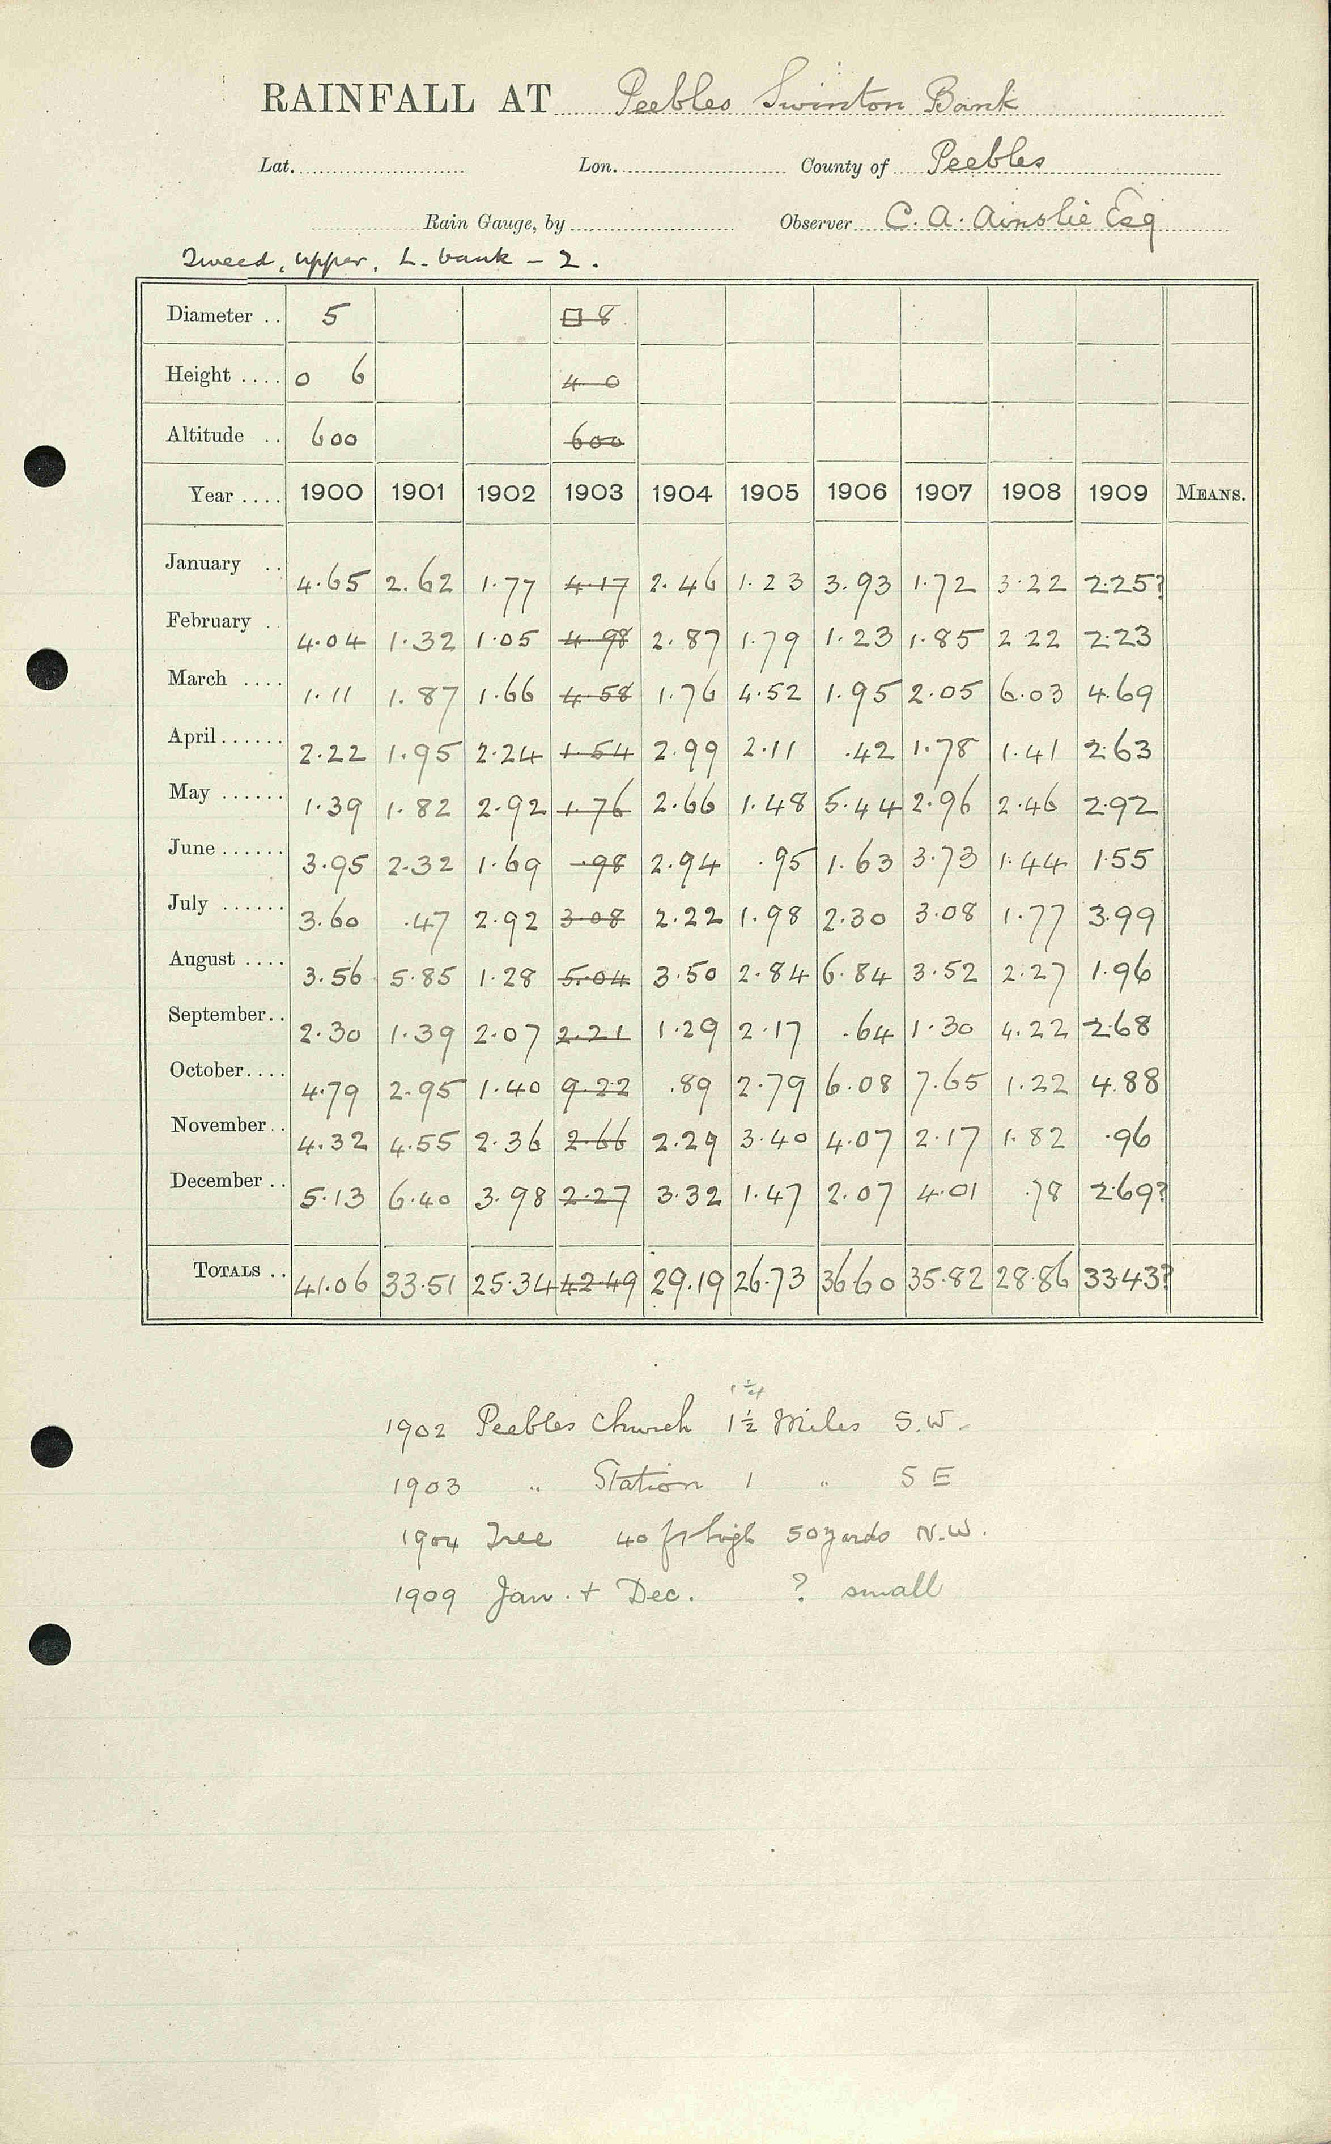 RAINFALL AT Peebles Swinton Bank
Lat. Lon. County of Peebles
Rain Gauge, by Observer C. A. Ainslie Esq
Tweed, upper, L. bank - 2.
Diameter .. 5 □ 8
Height .... 0 6 4 0
Altitude .. 600 600
Year .... 1900 1901 1902 1903 1904 1905 1906 1907 1908 1909 MEANS.
January .. 4.65 2.62 1.77 4.17 2.46 1.23 3.93 1.72 3.22 2.25?
February .. 4.04 1.32 1.05 4.98 2.87 1.79 1.23 1.85 2.22 2.23
March .... 1.11 1.87 1.66 4.58 1.76 4.52 1.95 2.05 6.03 4.69
April...... 2.22 1.95 2.24 1.54 2.99 2.11 .42 1.78 1.41 2.63
May ...... 1.39 1.82 2.92 1.76 2.66 1.48 5.44 2.96 2.46 2.92
June ...... 3.95 2.32 1.69 .98 2.94 .95 1.63 3.73 1.44 1.55
July ...... 3.60 .47 2.92 3.08 2.22 1.98 2.30 3.08 1.77 3.99
August .... 3.56 5.85 1.28 5.04 3.50 2.84 6.84 3.52 2.27 1.96
September.. 2.30 1.39 2.07 2.21 1.29 2.17 .64 1.30 4.22 2.68
October.... 4.79 2.95 1.40 9.22 .89 2.79 6.08 7.65 1.22 4.88
November.. 4.32 4.55 2.36 2.66 2.29 3.40 4.07 2.17 1.82 .96
December .. 5.13 6.40 3.98 2.27 3.32 1.47 2.07 4.01 .78 2.69?
TOTALS .. 41.06 33.51 25.34 42.49 29.19 26.73 36.60 35.82 28.86 33.43?
1 1/4
1902 Peebles Church 1½ Miles S.W.
1903 " Station 1 " S E
1904 Tree 40 ft high 50 yards N.W.
1909 Jan. + Dec. ? small